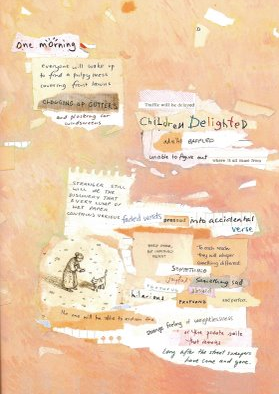 One morning
everyone will wake up
to find a pulpy mess
covering front lawns
CLOGGING UP GUTTERS
and plastering car
windscreens
Traffic will be delayed
ChilDren DelighteD
adults BAFFLED
unable to figure out
where it all came from
STRANGER STILL
WILL BE THE
DISCOVERY THAT
EVERY LUMP OF
WET PAPER
CONTAINS VARIOUS
faded words
pressed into accidental
verse
To each reader
they will whisper
something different
SOMETHING
joyful
something sad
absurd
hilarious
PROFOUND
and perfect
No one will be able to explain the
strange feeling of weightlessness
or the private smile
that remains
Long after the street sweepers
have come and gone.